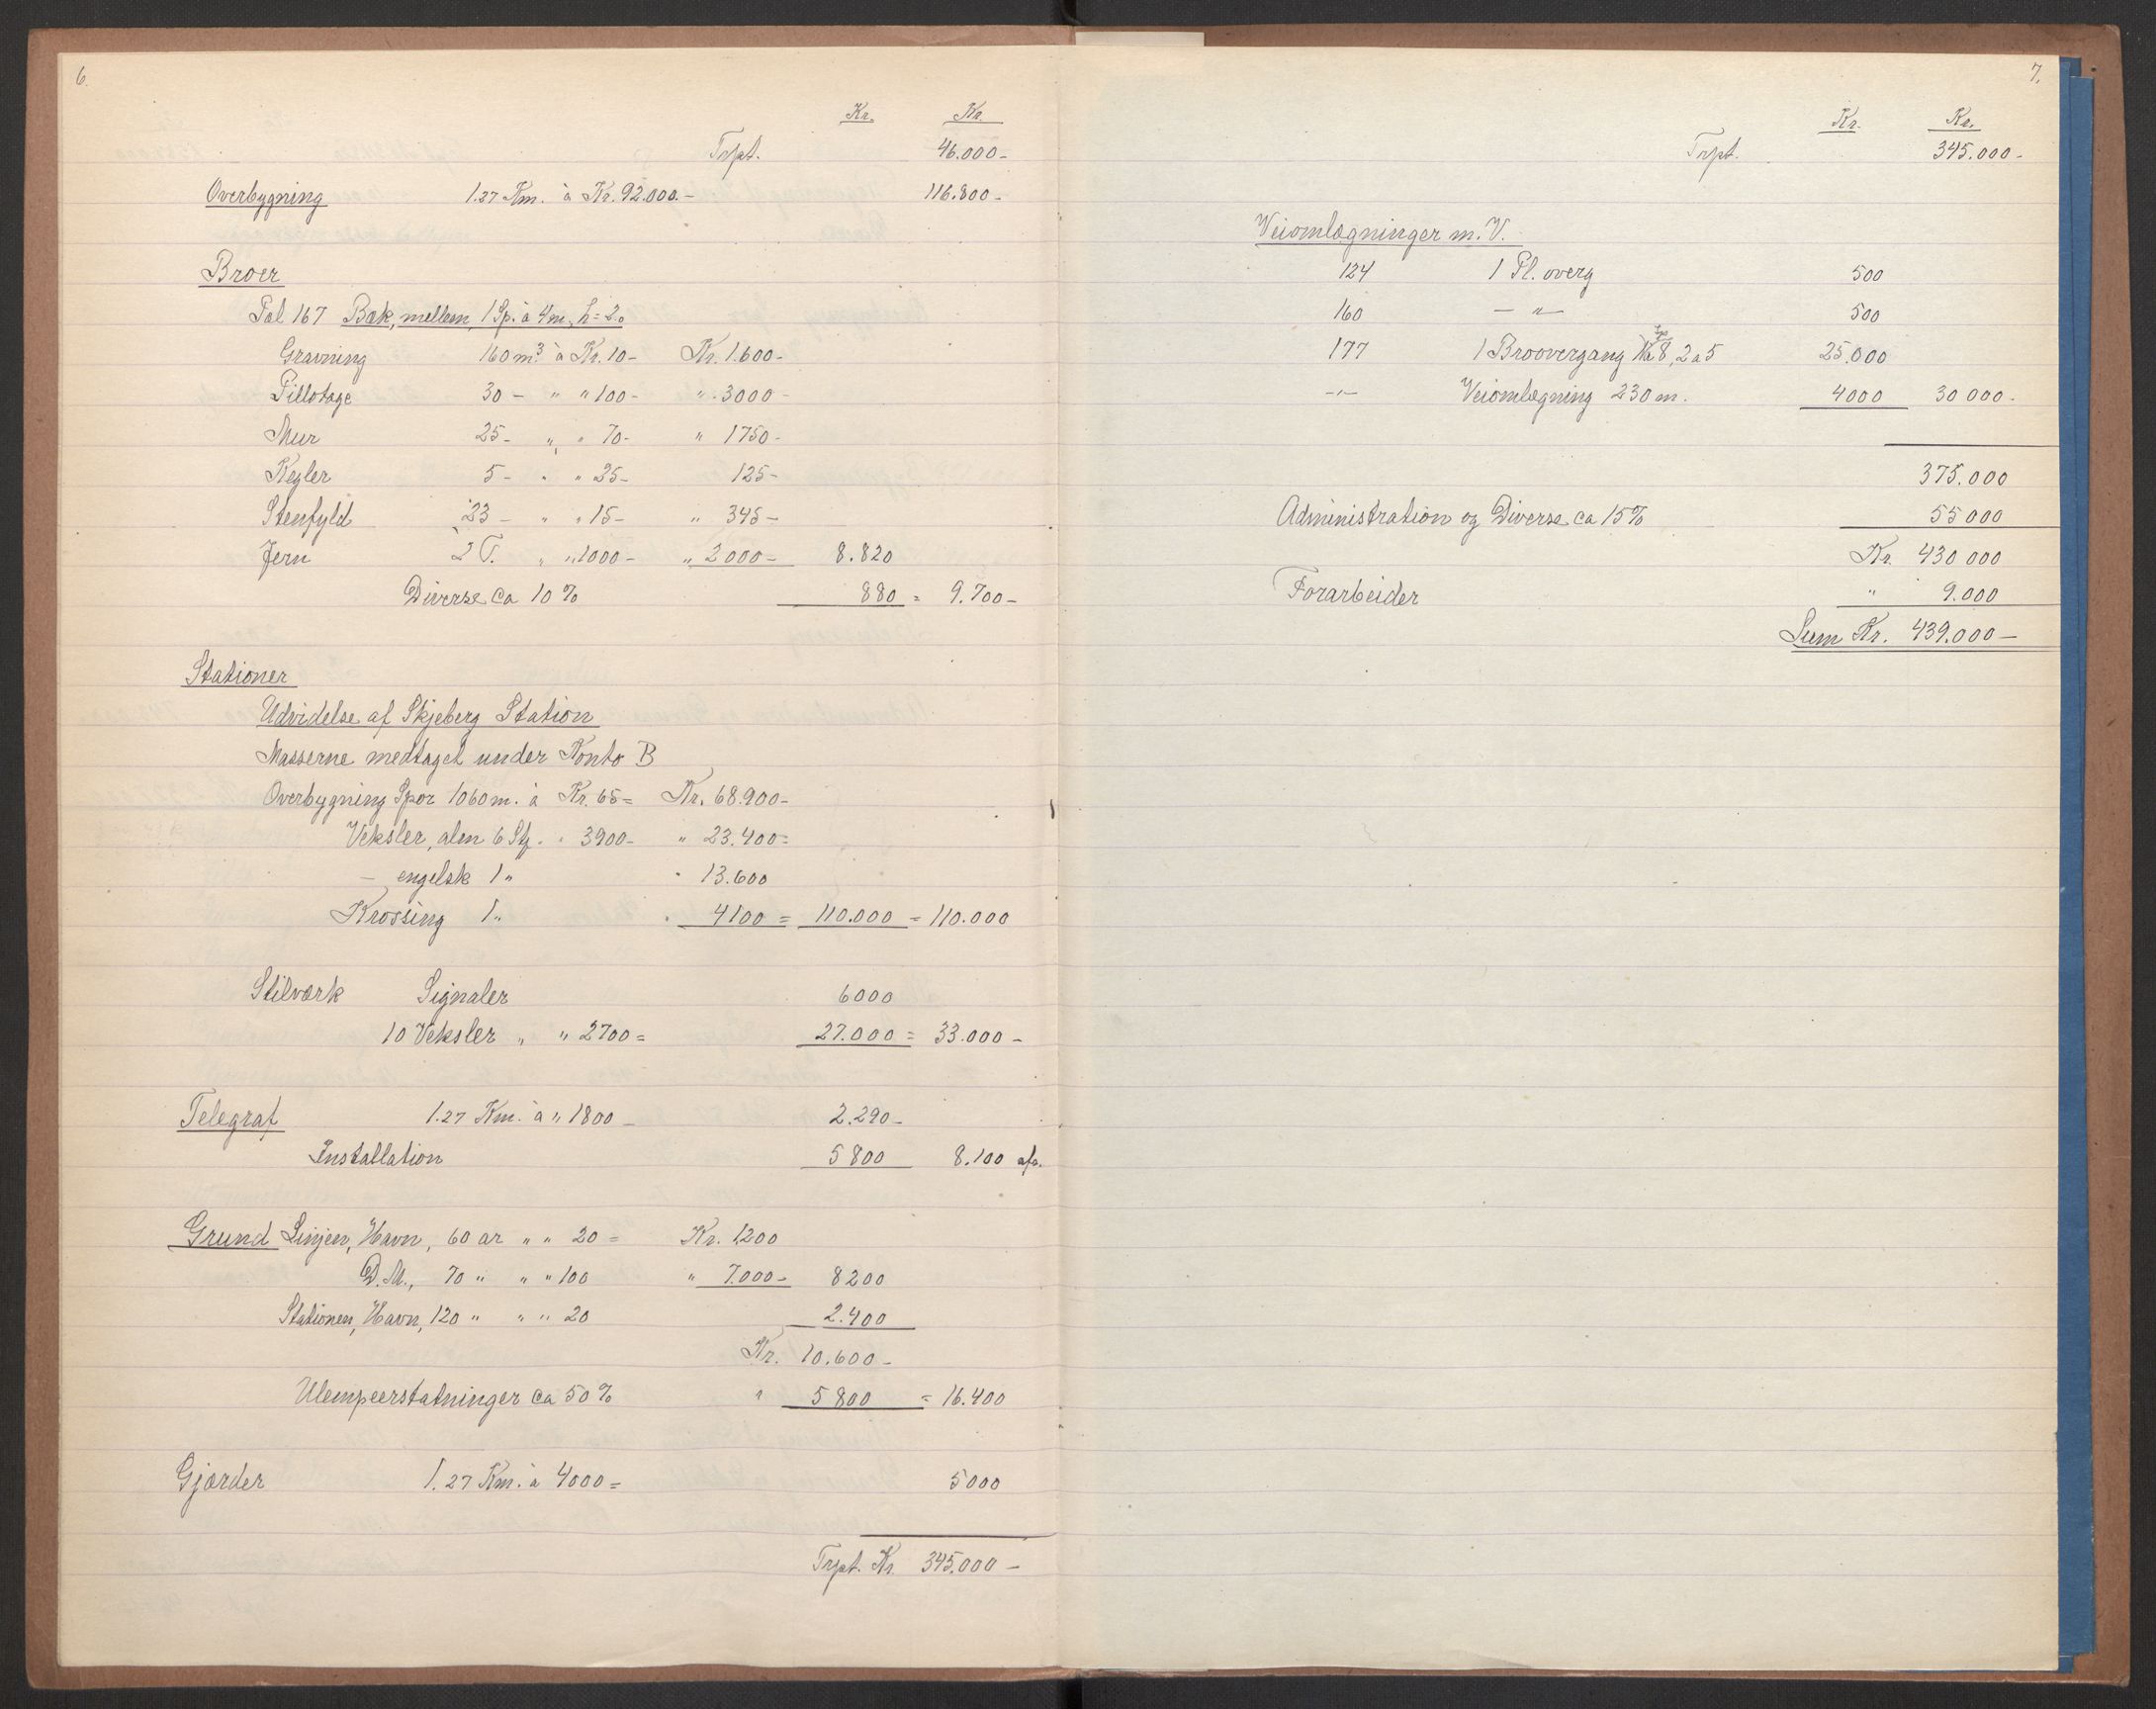 6.
Kr. Kr.
Trpt. 46.000 –
Overbygning 1.27 Km. à Kr. 92.000. – 116.800 –
Broer
Pæl 167 Bæk, mellem, 1 Sp. à 4 m, h = 2.0
Gravning 160 m³. à Kr. 10 – Kr. 1.600 –
Pillotage 30 – " " 100 – " 3000 –
Mur 25 – " " 70 – " 1750 –
Kegler 5 – " " 25 – 125 –
Stenfyld 23 – " " 15 – " 345 –
Jern 2 T. " " 1000 – " 2000 – 8.820
Diverse ca 10 % 880 = 9.700 –
Stationer
Udvidelse af Skjeberg Station
Masserne medtaget under Konto B
Overbygning Spor 1060 m. à Kr. 65 = Kr. 68.900 –
Veksler, alm 6 Stk. " 3900 – " 23.400 =
– engelsk 1 " " 13.600
Krossing 1 " " 4100 = 110.000 = 110.000
Stilværk Signaler 6000
10 Veksler " " 2700 = 27.000 = 33.000 –
Telegraf 1.27 Km. à " 1800 – 2.290 –
Installation 5800 8.100 afr.
Grund Linjen, Havn, 60 ar " " 20 = Kr. 1200
D.M., 70 " " " 100 " 7.000 – 8200
Stationen, Havn, 120 " " " 20 2.400
Kr. 10.600 –
Ulempeerstatninger ca 50 % " 5800 = 16.400
Gjærder 1.27 Km. à 4000 = 5000
Trpt. Kr. 345.000 –
7.
Kr. Kr.
Trpt. 345.000 –
Veiomlægninger m. V.
124 1 Pl. overg 500
160 – " – 500
177 1 Broovergang 8, 2 a 5 25.000
– " – Veiomlægning 230 m. 4000 30 000 –
375.000
Administration og Diverse ca 15 % 55 000
Kr. 430 000
Forarbeider " 9.000
Sum Kr. 439.000 –